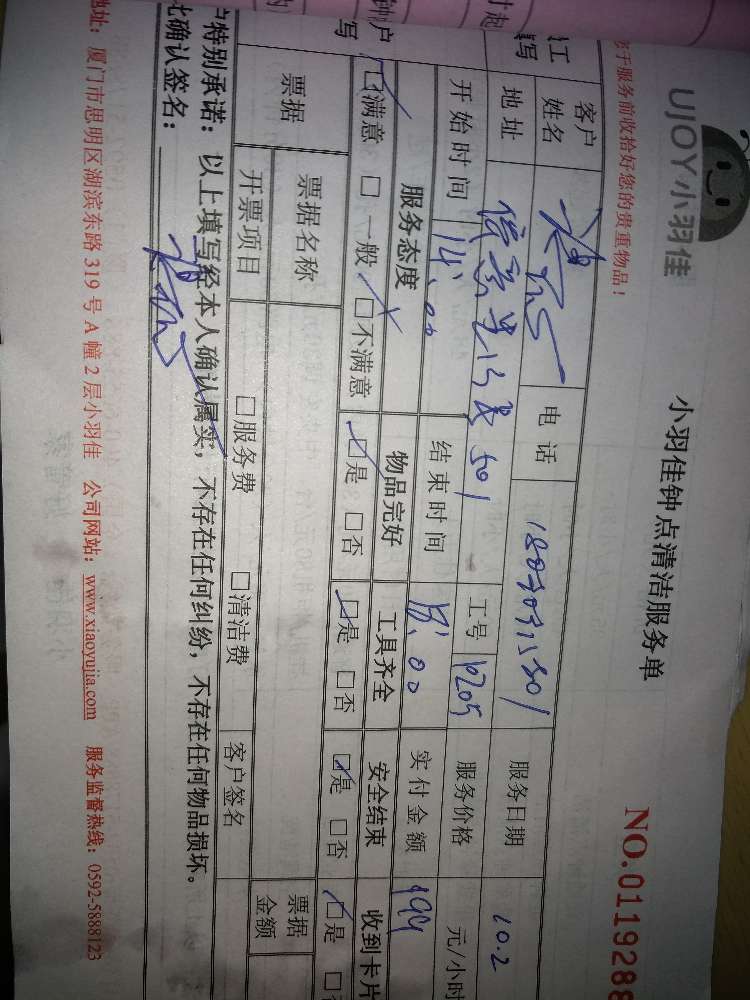 UJOY小羽佳
小羽佳钟点清洁服务单
NO.0119288
于服务前收拾好您的贵重物品！
客户姓名 电话 服务日期 10.2
地址 501 工号 服务价格 元/小时
开始时间 14:00 结束时间 18:00 实付金额
服务态度 物品完好 工具齐全 安全结束 收到卡片
☑满意 □一般 □不满意 ☑是 □否 ☑是 □否 ☑是 □否 ☑是
票据 票据名称 票据金额
开票项目 □服务费 □清洁费 客户签名
户特别承诺：以上填写经本人确认属实，不存在任何纠纷，不存在任何物品损坏。
此确认签名：
地址：厦门市思明区湖滨东路 319 号 A 幢 2 层小羽佳 公司网站：www.xiaoyujia.com 服务监督热线：0592-5888123